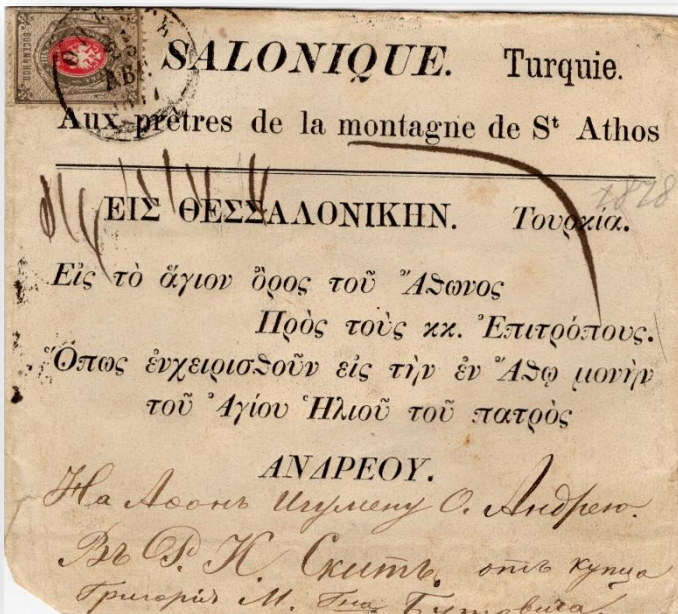 SALONIQUE. Turquie.
Aux prêtres de la montagne de Sᵗ Athos
1878
ΕΙΣ ΘΕΣΣΑΛΟΝΙΚΗΝ. Τουρκία.
Εἰς τὸ ἅγιον ὄρος τοῦ Ἄϑωνος
Πρὸς τοὺς κκ. Ἐπιτρόπους.
Ὅπως ἐνχειρισϑοῦν εἰς τὴν ἐν Ἄϑῳ μονὴν
τοῦ Ἁγίου Ἡλιοῦ τοῦ πατρὸς
ΑΝΔΡΕΟΥ.
На Аѳонъ Игумену О. Андрею.
Въ Р. И. Скитъ, отъ купца
Григорія М.